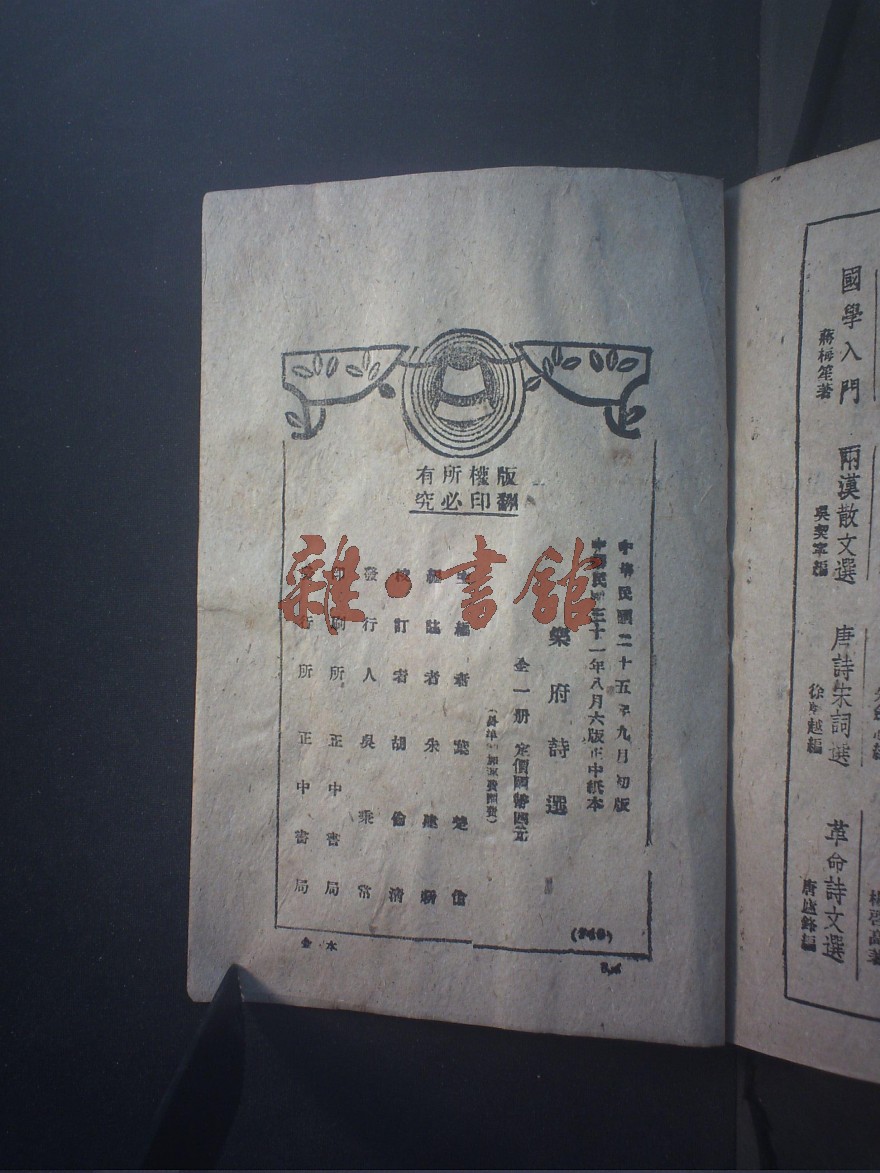 版權所有
翻印必究
中華民國二十五年九月初版
中華民國三十一年八月六版正中紙本
樂府詩選
全一册 定價國幣四元
主編者 葉楚傖
編註者 朱建新
校訂者 胡倫清
發行人 吳秉常
印刷所 正中書局
發行所 正中書局
(940)
本 金
雜·書館
國學入門
蔣梅笙著
兩漢散文選
吳契寧編
唐詩宋詞選
徐聲越編
革命詩文選
唐盧鋒編
楊啓高著